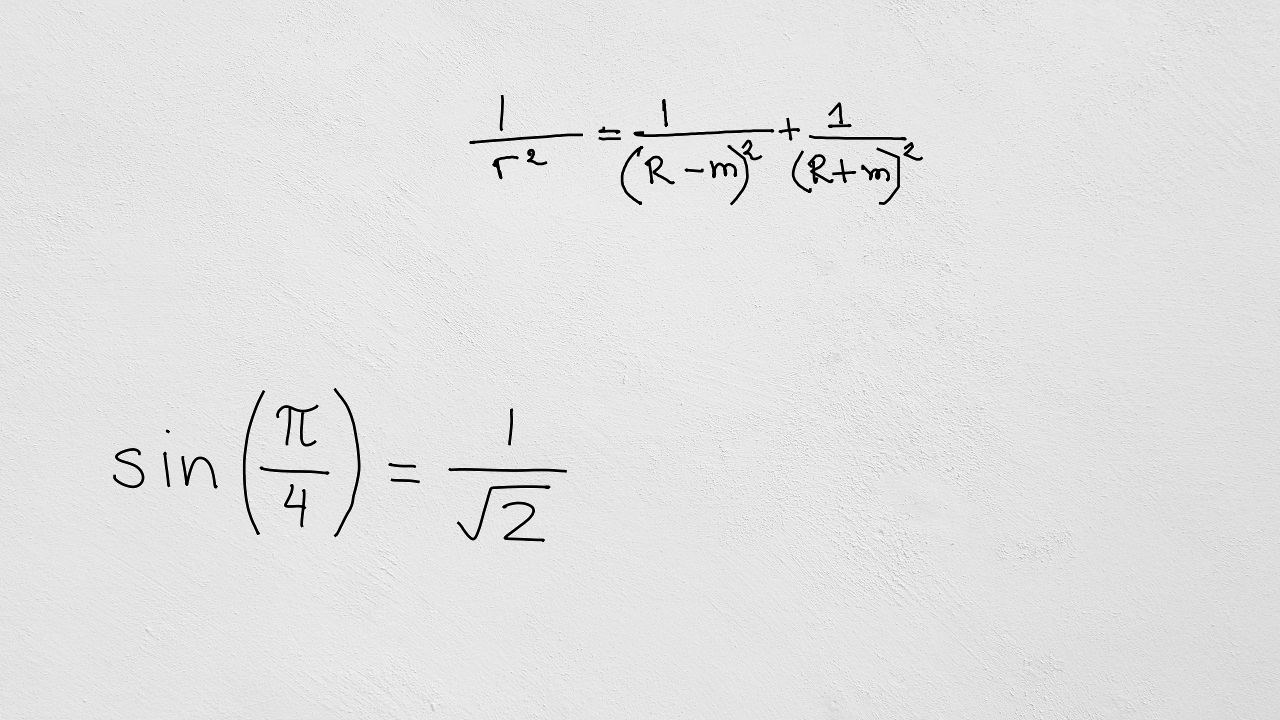 \frac{1}{r^2} = \frac{1}{(R-m)^2} + \frac{1}{(R+m)^2}
\sin\left(\frac{\pi}{4}\right) = \frac{1}{\sqrt{2}}